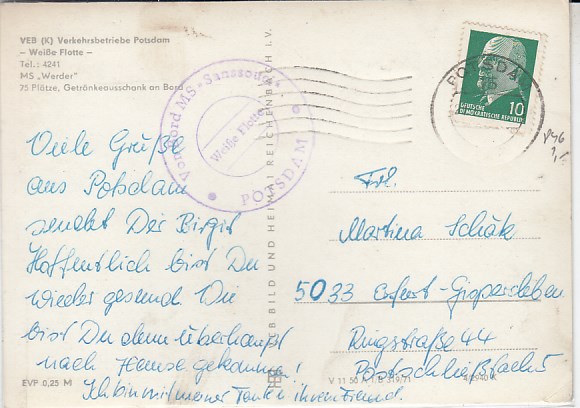 VEB (K) Verkehrsbetriebe Potsdam
– Weiße Flotte –
Tel.: 4241
MS „Werder"
75 Plätze, Getränkeausschank an Bord
Von Bord MS „Sanssouci"
Weiße Flotte
POTSDAM
POTSDA
10
DEUTSCHE
DEMOKRATISCHE REPUBLIK
Viele Grüße
aus Potsdam
sendet Dir Birgit
Hoffentlich bist Du
wieder gesund. Wie
bist Du denn überhaupt
nach Hause gekommen!
Ich bin mit meiner Tante + ihren Freund.
Frl.
Martina Schätz
5033 Erfurt-Gispersleben
Ringstraße 44
Postschließfach 5
BILD UND HEIMAT REICHENBACH I. V.
EVP 0,25 M
V 11 50 A 1/B 319/71